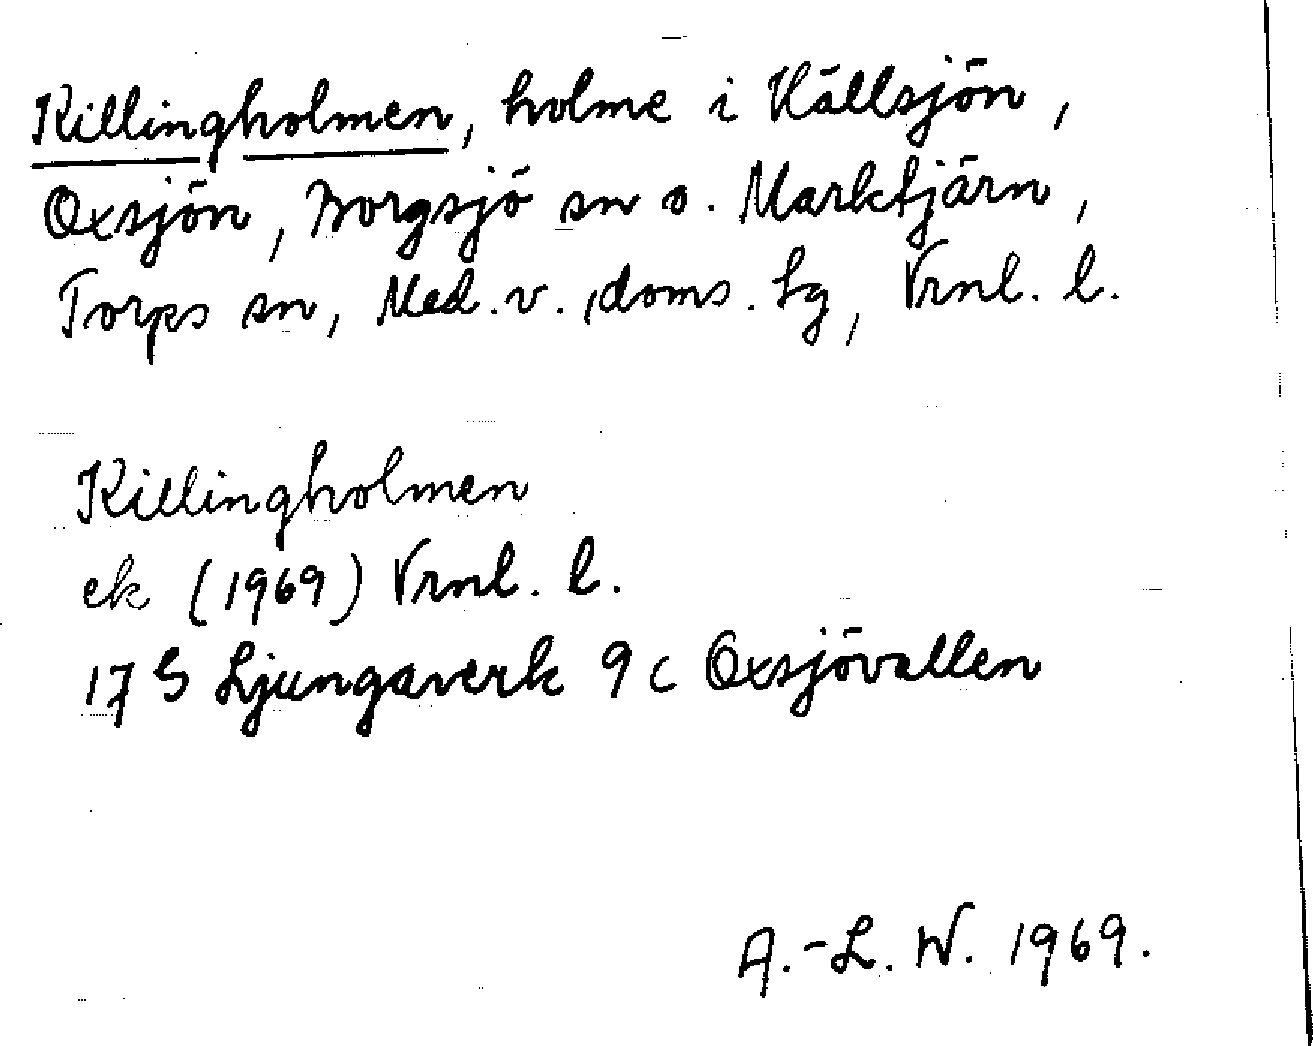 Killingholmen, holme i Källsjön,
Oxsjön, Borgsjö sn o. Marktjärn,
Torps sn, Med. v. doms. tg, Vrnl. l.
Killingholmen
ek (1969) Vrnl. l.
17 G Ljungaverk 9 c Oxsjövallen
A.-L. W. 1969.